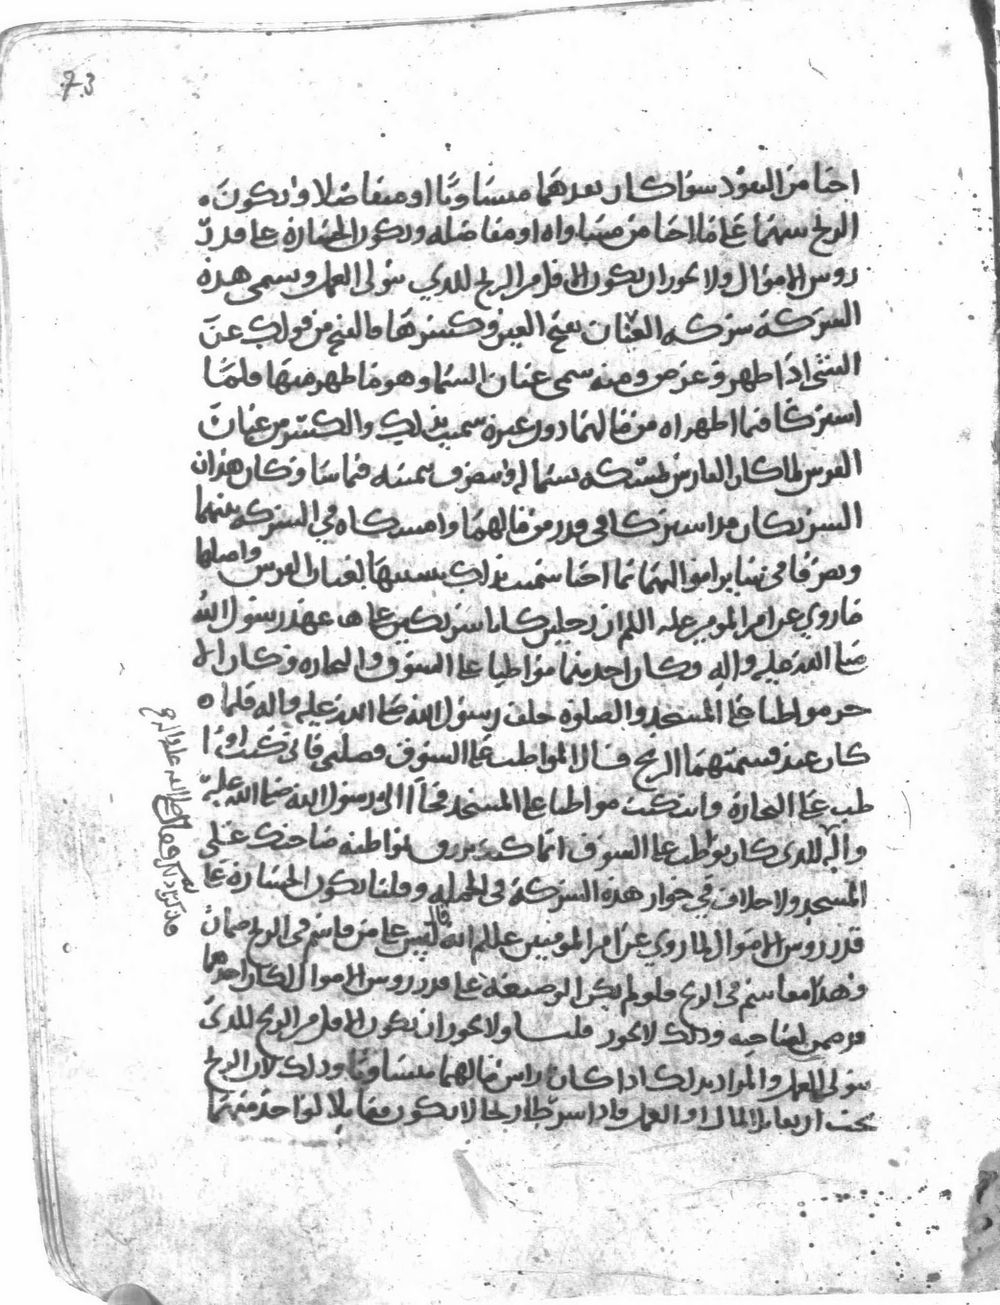 73
احبا من النقود سوا كان نقدهما متساويا او متفاضلا ويكون
الربح بينهما على ما احبا من مساواه او مفاضله ويكون الخسارة على قدر
روس الاموال ولا يجوز ان يكون الاقل من الربح للذي يتولى العمل ويسمى هذه
الشركة شركه العنان بفتح العين وكسرها فالفتح من قولك عن
الشئ اذا ظهر وعرض ومنه سمي عنان السما وهو ما ظهر منها فلما
اشتركا فيما اظهراه من مالهما دون غيره سميت بذلك والكسر من عنان
الفرس لما كان الفارس يمسكه بشماله ويتصرف بيمينه فيما شا وكان هذان
الشريكان قد اشتركا في قدر من مالهما وامسكاه في الشركه بينهما
وتصرفا في ساير اموالهما بما احبا سميت بذلك تشبيها بعنان الفرس واصلها
ما روي عن امير المومنين عليه السلم ان رجلين كانا شريكين على عهد رسول الله
صلى الله عليه واله وكان احدهما مواظبا على السوق والتجاره وكان الا
خر مواظبا على المسجد والصلوة خلف رسول الله صلى الله عليه واله فلما
كان عند قسمتهما الربح قال المواظب على السوق فضلني فاني كنت اوا
ظب على التجارة وانت كنت مواظبا على المسجد فجاا الى رسول الله صلى الله عليه
واله للذي كان يواظب على السوق انما كنت ترزق بمواظبه صاحبك على
المسجد ولا خلاف في جواز هذه الشركة في الجمله وقلنا يكون الخسارة على
قدر روس الاموال لما روي عن امير المومنين عليه السلم انه قال ليس على من قاسم في الربح ضمان
وهذا مقاسم في الربح فلو لم يكن الوضيعة على قدر روس الاموال لكان احدهما
قد ضمن لصاحبه وذلك لا يجوز قلنا ولا يجوز ان يكون الاقل من الربح للذي
يتولى العمل والمراد بذلك اذا كان راس مالهما متساويا وذلك لان الربح
يجب ان يقابل المال او العمل فاذا اشترطا ربحا لا يكون مقابلا لواحد منهما